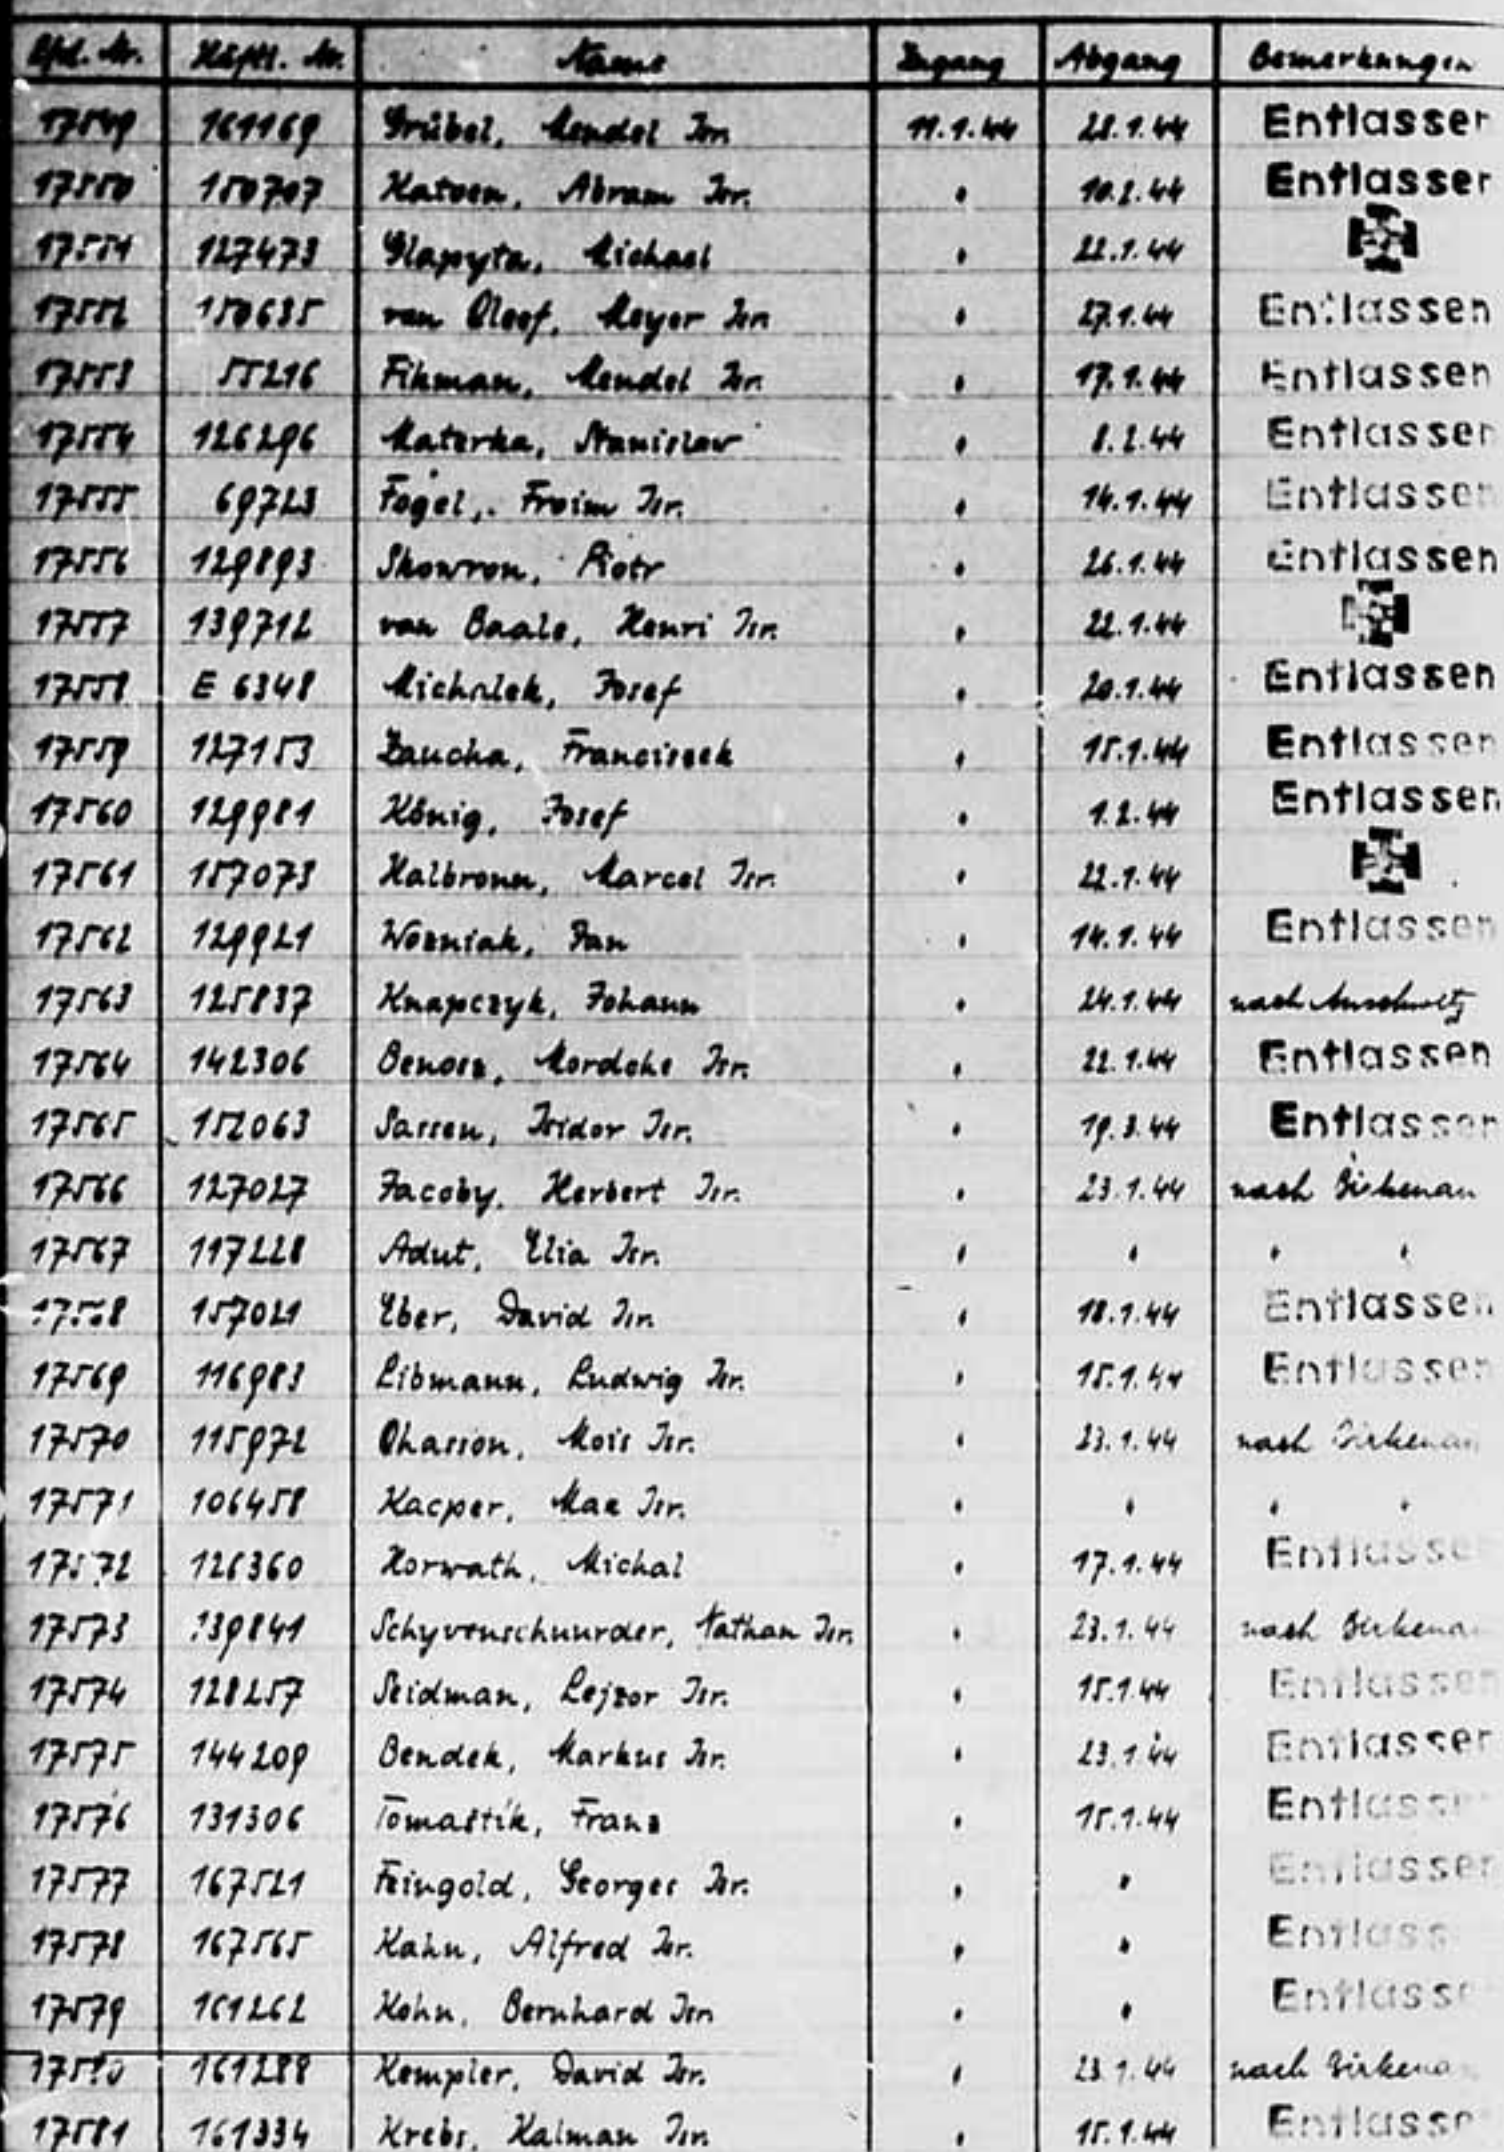 Lfd. Nr. Häftl. Nr. Name Zugang Abgang Bemerkungen
17549 161169 Grübel, Mendel Isr. 11.1.44 28.1.44 Entlassen
17550 150707 Katoen, Abram Isr. " 10.2.44 Entlassen
17551 127473 Glapyta, Michael " 22.1.44
17552 150635 van Cleef, Meyer Isr. " 27.1.44 Entlassen
17553 55216 Fikman, Mendel Isr. " 17.1.44 Entlassen
17554 126296 Materka, Stanislaw " 8.2.44 Entlassen
17555 69723 Fogel, Froim Isr. " 14.1.44 Entlassen
17556 129893 Skowron, Piotr " 26.1.44 Entlassen
17557 139712 van Baale, Henri Isr. " 22.1.44
17558 E 6348 Michalek, Josef " 20.1.44 Entlassen
17559 127153 Zaucha, Franciszek " 15.1.44 Entlassen
17560 129981 König, Josef " 1.2.44 Entlassen
17561 157073 Halbronn, Marcel Isr. " 22.1.44
17562 129921 Wozniak, Jan " 14.1.44 Entlassen
17563 125837 Knapczyk, Johann " 24.1.44 nach Auschwitz
17564 142306 Mordche Isr. " 22.1.44 Entlassen
17565 152063 Sassen, Isidor Isr. " 19.3.44 Entlassen
17566 127027 Jacoby, Herbert Isr. " 23.1.44 nach Birkenau
17567 117228 Adut, Elia Isr. " " " "
17568 157021 Eber, David Isr. " 18.1.44 Entlassen
17569 116983 Libmann, Ludwig Isr. " 15.1.44 Entlassen
17570 115972 Chasson, Mois Isr. " 23.1.44 nach Birkenau
17571 106458 Kacper, Max Isr. " " " "
17572 126360 Horwath, Michal " 17.1.44 Entlassen
17573 139841 Schyvenschuurder, Nathan Isr. " 23.1.44 nach Birkenau
17574 128257 Seidman, Lejzor Isr. " 15.1.44 Entlassen
17575 144209 Bendek, Markus Isr. " 23.1.44 Entlassen
17576 131306 Tomastik, Franz " 15.1.44 Entlassen
17577 167521 Feingold, Georges Isr. " " Entlassen
17578 167565 Kahn, Alfred Isr. " " Entlassen
17579 161262 Kohn, Bernhard Isr. " " Entlassen
17580 161288 Kempler, David Isr. " 23.1.44 nach Birkenau
17581 161334 Krebs, Kalman Isr. " 15.1.44 Entlassen